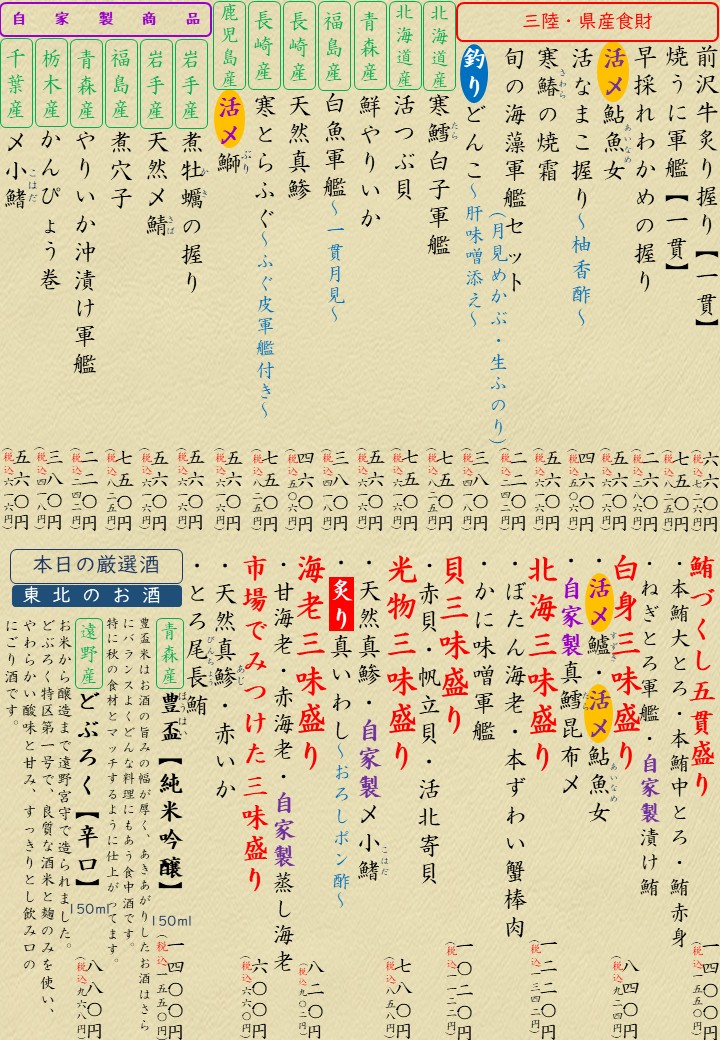 三陸・県産食財
前沢牛炙り握り【一貫】 六六〇円
(税込七二六円)
焼うに軍艦【一貫】 七五〇円
(税込八二五円)
早採れわかめの握り 二六〇円
(税込二八六円)
活〆鮎魚女 五六〇円
あいなめ
(税込六一六円)
活なまこ握り〜柚香酢〜 四六〇円
(税込五〇六円)
寒鰆の焼霜 五六〇円
さわら
(税込六一六円)
旬の海藻軍艦セット 二二〇円
(月見めかぶ・生ふのり)
(税込二四二円)
釣りどんこ〜肝味噌添え〜 三八〇円
(税込四一八円)
北海道産
寒鱈白子軍艦 七五〇円
たら
(税込八二五円)
北海道産
活つぶ貝 七五〇円
青森産
鮮やりいか 五六〇円
(税込六一六円)
福島産
白魚軍艦〜一貫月見〜 三八〇円
(税込四一八円)
長崎産
天然真鯵 四六〇円
(税込五〇六円)
長崎産
寒とらふぐ〜ふぐ皮軍艦付き〜 七五〇円
(税込八二五円)
鹿児島産
活〆鰤 五六〇円
ぶり
(税込六一六円)
自家製商品
岩手産
煮牡蠣の握り 五六〇円
かき
(税込六一六円)
岩手産
天然〆鯖 五六〇円
さば
(税込六一六円)
福島産
煮穴子 七五〇円
(税込八二五円)
青森産
やりいか沖漬け軍艦 二二〇円
(税込二四二円)
栃木産
かんぴょう巻 三八〇円
(税込四一八円)
千葉産
〆小鰭 五六〇円
こはだ
(税込六一六円)
鮪づくし五貫盛り 一四〇〇円
・本鮪大とろ・本鮪中とろ・鮪赤身
・ねぎとろ軍艦・自家製漬け鮪
白身三味盛り 八四〇円
(税込九二四円)
・活〆鱸・活〆鮎魚女
すずき
あいなめ
・自家製真鱈昆布〆
たら
北海三味盛り 一二二〇円
(税込一三四二円)
・ぼたん海老・本ずわい蟹棒肉
・かに味噌軍艦
貝三味盛り 一〇二〇円
(税込一一二二円)
・赤貝・帆立貝・活北寄貝
光物三味盛り 七八〇円
(税込八五八円)
・天然真鯵・自家製〆小鰭
こはだ
・炙り真いわし〜おろしポン酢〜
海老三味盛り 八二〇円
(税込九〇二円)
・甘海老・赤海老・自家製蒸し海老
市場でみつけた三味盛り 六〇〇円
(税込六六〇円)
・天然真鯵・赤いか
あじ
・とろ尾長鮪
びんちょう
本日の厳選酒
東北のお酒
青森産
豊盃【純米吟醸】 150ml 一四〇〇円
ほうはい
豊盃米はお酒の旨みの幅が厚く、あきあがりしたお酒はさら
にバランスよくどんな料理にもあう食中酒です。
特に秋の食材とマッチするように仕上がってます。
遠野産
どぶろく【辛口】 150ml 八八〇円
(税込九六八円)
お米から醸造まで遠野宮守で造られました。
どぶろく特区第一号で、良質な酒米と麹のみを使い、
やわらかい酸味と甘み、すっきりとし飲み口の
にごり酒です。